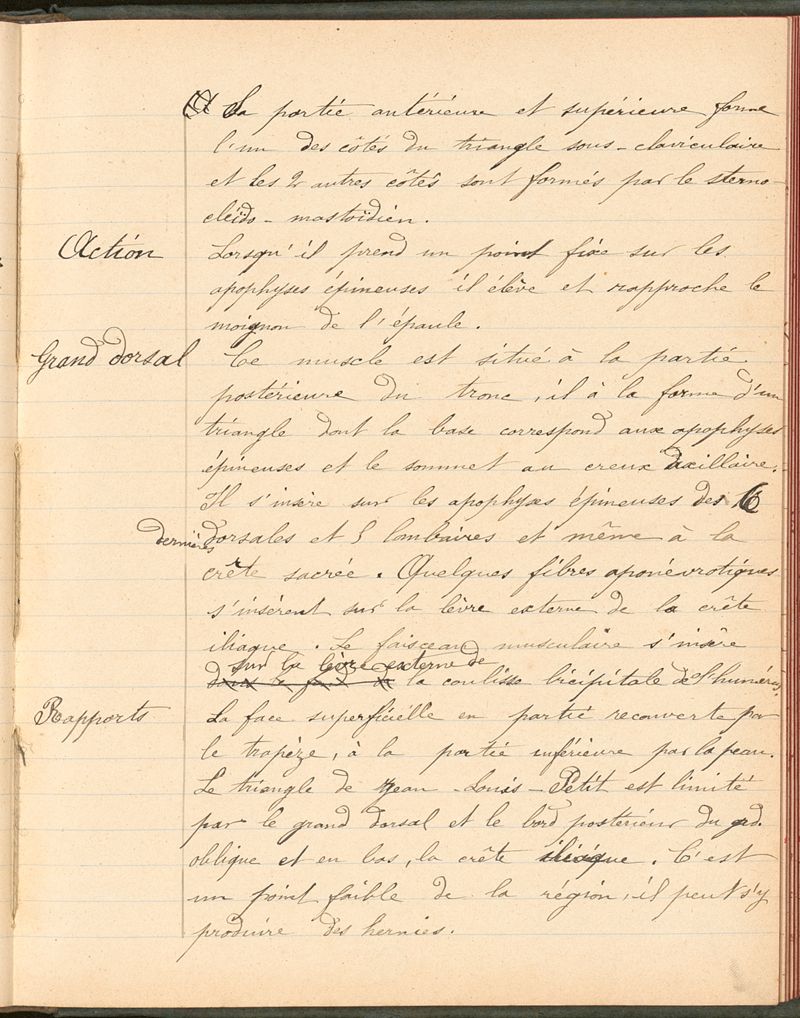 La partie antérieure et supérieure forme
l'un des côtés du triangle sous-claviculaire
et les 2 autres côtés sont formés par le sterno-
cléïdo-mastoïdien.
Action
Lorsqu'il prend un point fixe sur les
apophyses épineuses il élève et rapproche le
moignon de l'épaule.
Grand dorsal
Ce muscle est situé à la partie
postérieure du tronc, il à la forme d'un
triangle dont la base correspond aux apophyses
épineuses et le sommet au creux axillaire.
Il s'insère sur les apophyses épineuses des 6
dernières dorsales et 5 lombaires et même à la
crête sacrée. Quelques fibres aponévrotiques
s'insèrent sur la lèvre externe de la crête
iliaque. Le faisceau musculaire s'insère
sur la lèvre externe de
dans le fond de la coulisse bicipitale de l'humérus.
Rapports
La face superficielle en partie recouverte par
le trapèze, à la partie inférieure par la peau.
Le triangle de Jean-Louis-Petit est limité
par le grand dorsal et le bord postérieur du grd.
oblique et en bas, la crête iliaque. C'est
un point faible de la région, il peut s'y
produire des hernies.